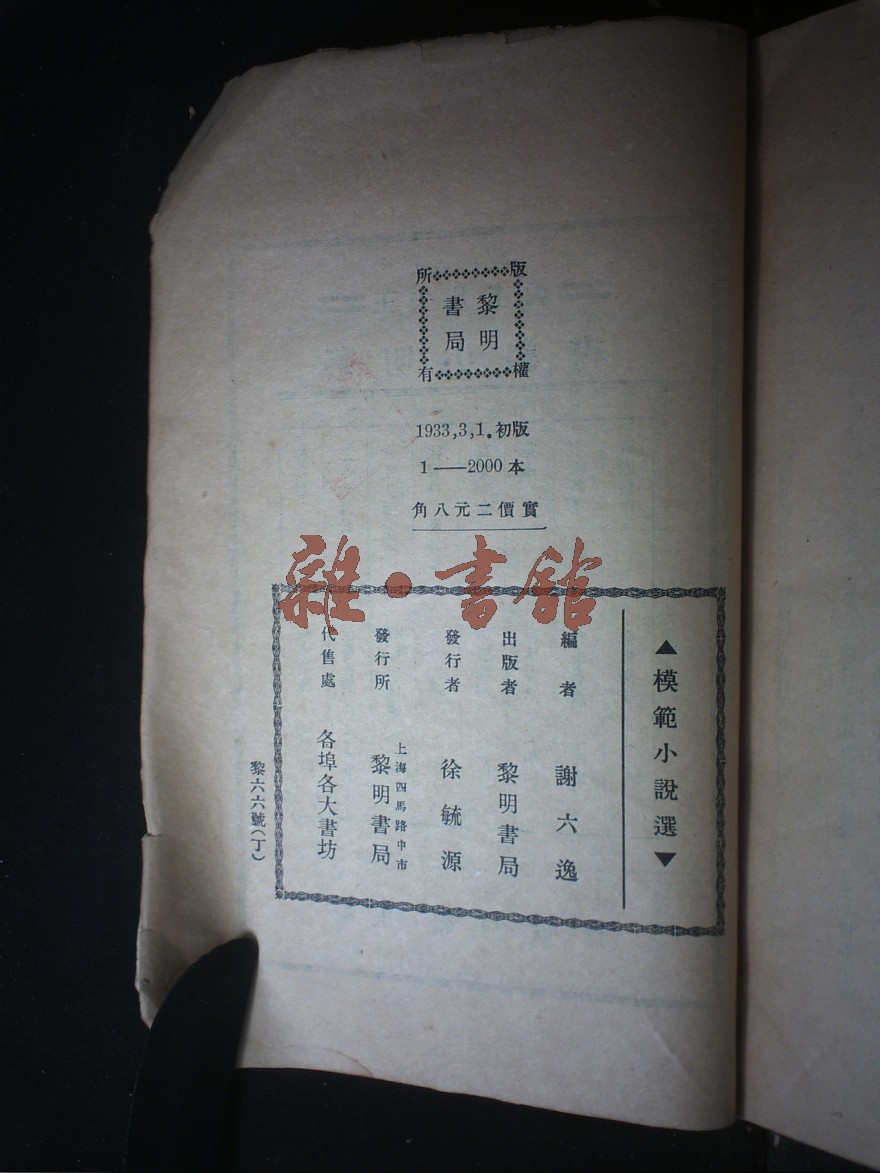 版權所有
黎明
書局
1933,3,1.初版
1——2000本
實價二元八角
雜·書館
▲模範小說選▼
編者 謝六逸
出版者 黎明書局
發行者 徐毓源
發行所 上海四馬路中市 黎明書局
代售處 各埠各大書坊
黎六六號(丁)